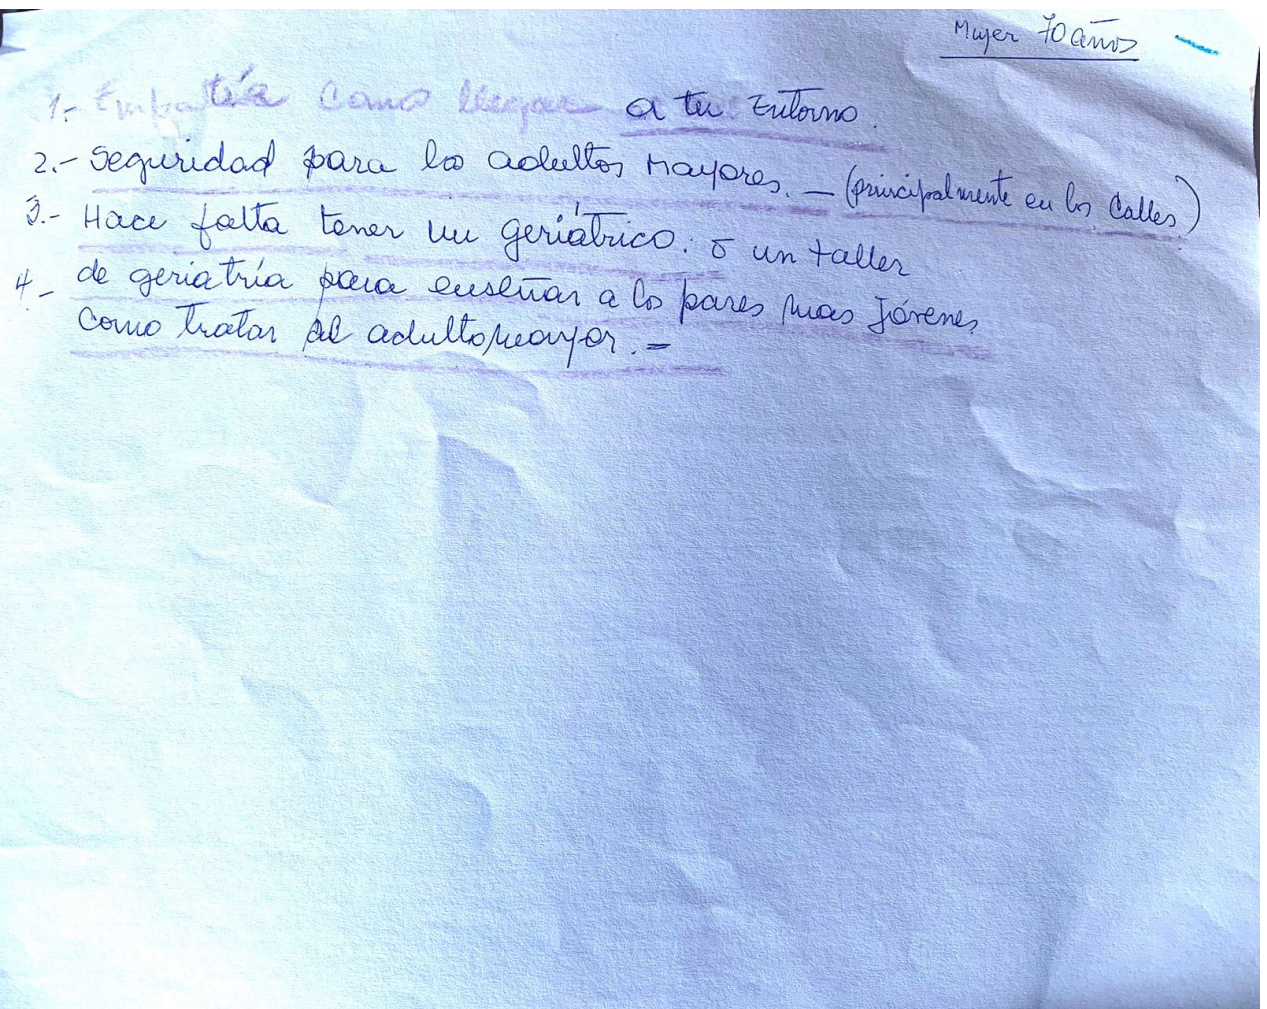 Mujer 70 años
1.- Empatía como llegar a tu Entorno.
2.- Seguridad para los adultos Mayores. — (principalmente en las Calles)
3.- Hace falta tener un geriátrico. o un taller
4- de geriatría para enseñar a los pares mas Jóvenes
como tratar al adulto mayor. =